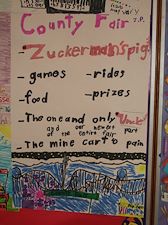 County Fair
J.P.
- Zuckerman's pig
- games - rides
- food - prizes
- The one and only "Uncle"
and our newest part
of the entire fair:
- The mine cart o pain